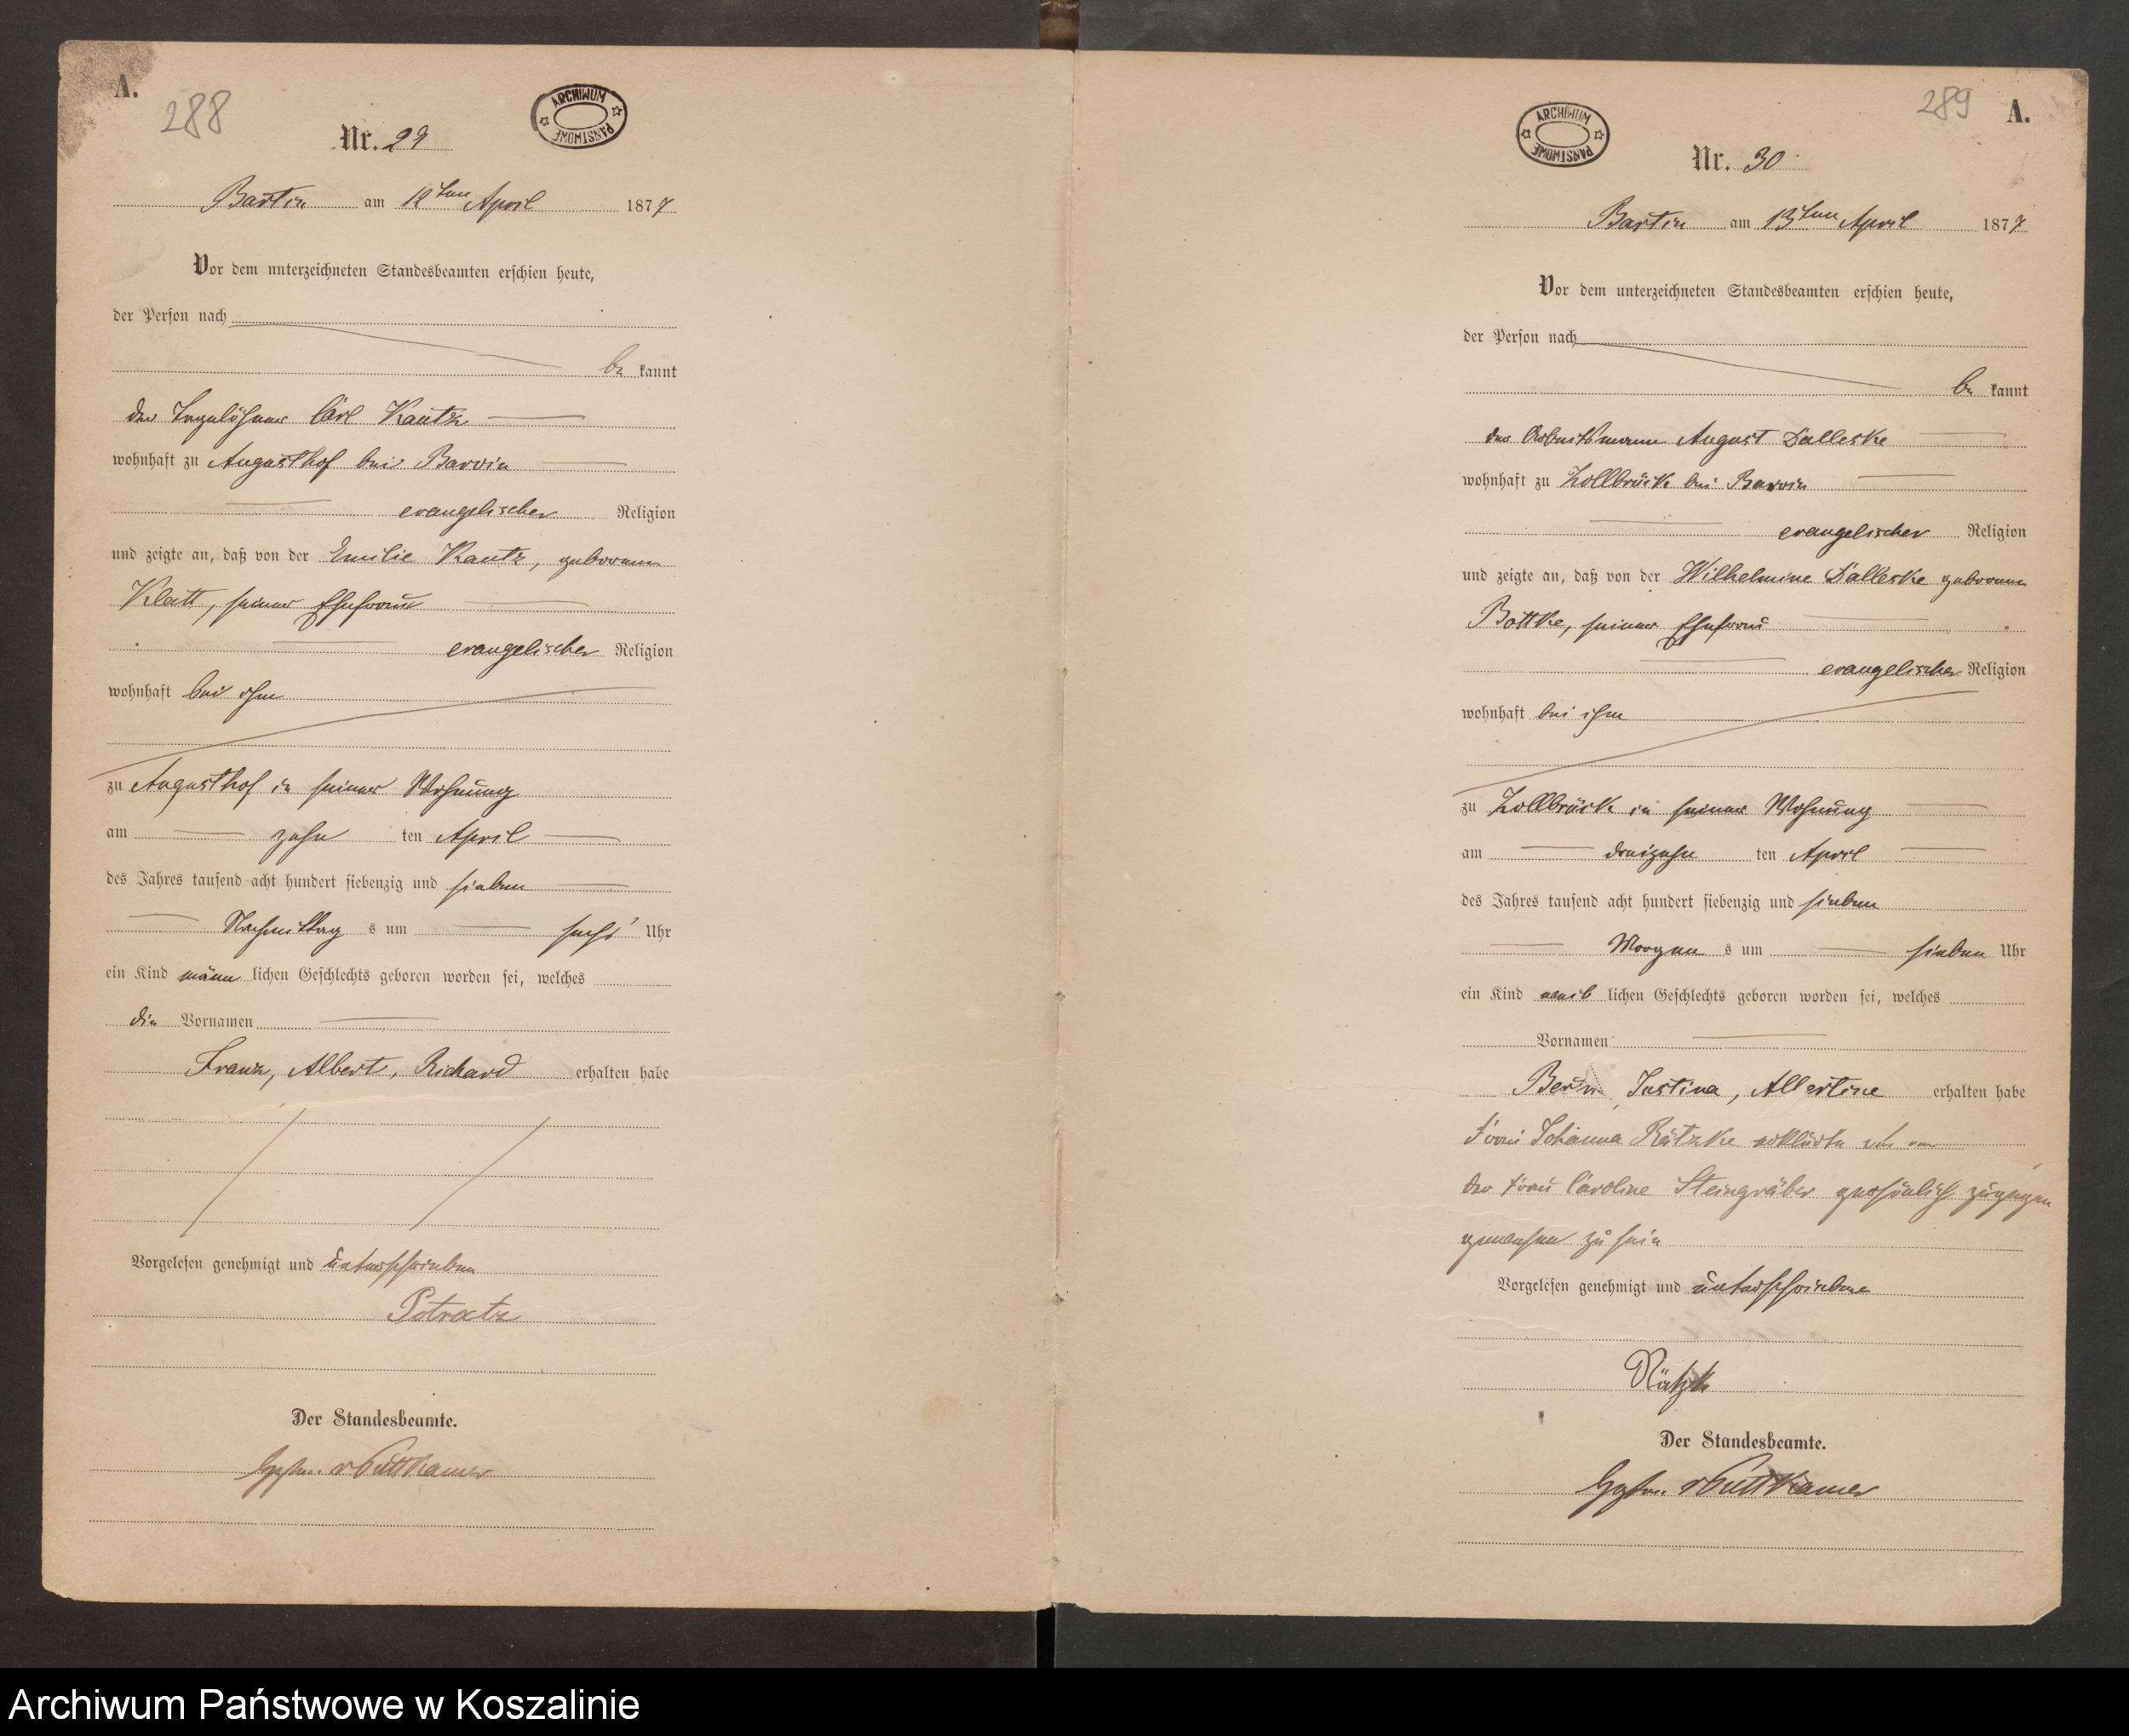 A.
288
ARCHIWUM PAŃSTWOWE
Nr. 29
Bartin am 12ten April 1877
Vor dem unterzeichneten Standesbeamten erschien heute,
der Person nach
be kannt
der Tagelöhner Carl Kautz
wohnhaft zu Augusthof bei Barvin
evangelischer Religion
und zeigte an, daß von der Emilie Kautz, geborenen
Klatt, seiner Ehefrau
evangelischer Religion
wohnhaft bei ihm
zu Augusthof in seiner Wohnung
am zehn ten April
des Jahres tausend acht hundert siebenzig und sieben
Nachmittag s um sechs Uhr
ein Kind männ lichen Geschlechts geboren worden sei, welches
die Vornamen
Franz, Albert, Richard erhalten habe
Vorgelesen genehmigt und unterschrieben
Potratz
Der Standesbeamte.
v Puttkamer
289
A.
ARCHIWUM PAŃSTWOWE
Nr. 30
Bartin am 13ten April 1877
Vor dem unterzeichneten Standesbeamten erschien heute,
der Person nach
be kannt
der Arbeitsmann August Dalleske
wohnhaft zu Zollbrück bei Barvin
evangelischer Religion
und zeigte an, daß von der Wilhelmine Dalleske geborenen
Böttke, seiner Ehefrau
evangelischer Religion
wohnhaft bei ihm
zu Zollbrück in seiner Wohnung
am dreizehn ten April
des Jahres tausend acht hundert siebenzig und sieben
Morgen s um sieben Uhr
ein Kind weib lichen Geschlechts geboren worden sei, welches
Vornamen
Justina, Albertine erhalten habe
Frau Johanna Rätzke erklärte
der Frau Caroline Steingräber persönlich zugegen
gewesen zu sein
Vorgelesen genehmigt und unterschrieben
Rätzk
Der Standesbeamte.
v Puttkamer
Archiwum Państwowe w Koszalinie